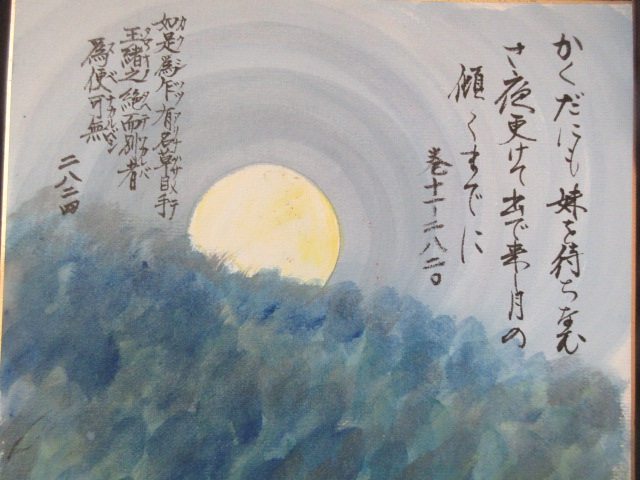 かくだにも 妹を待ちなむ
さ夜更けて出で来し月の
傾くまでに
巻十一-二八二〇
如是為乍 有名草目手
玉緒之 絶而別者
為便可無
二八二四